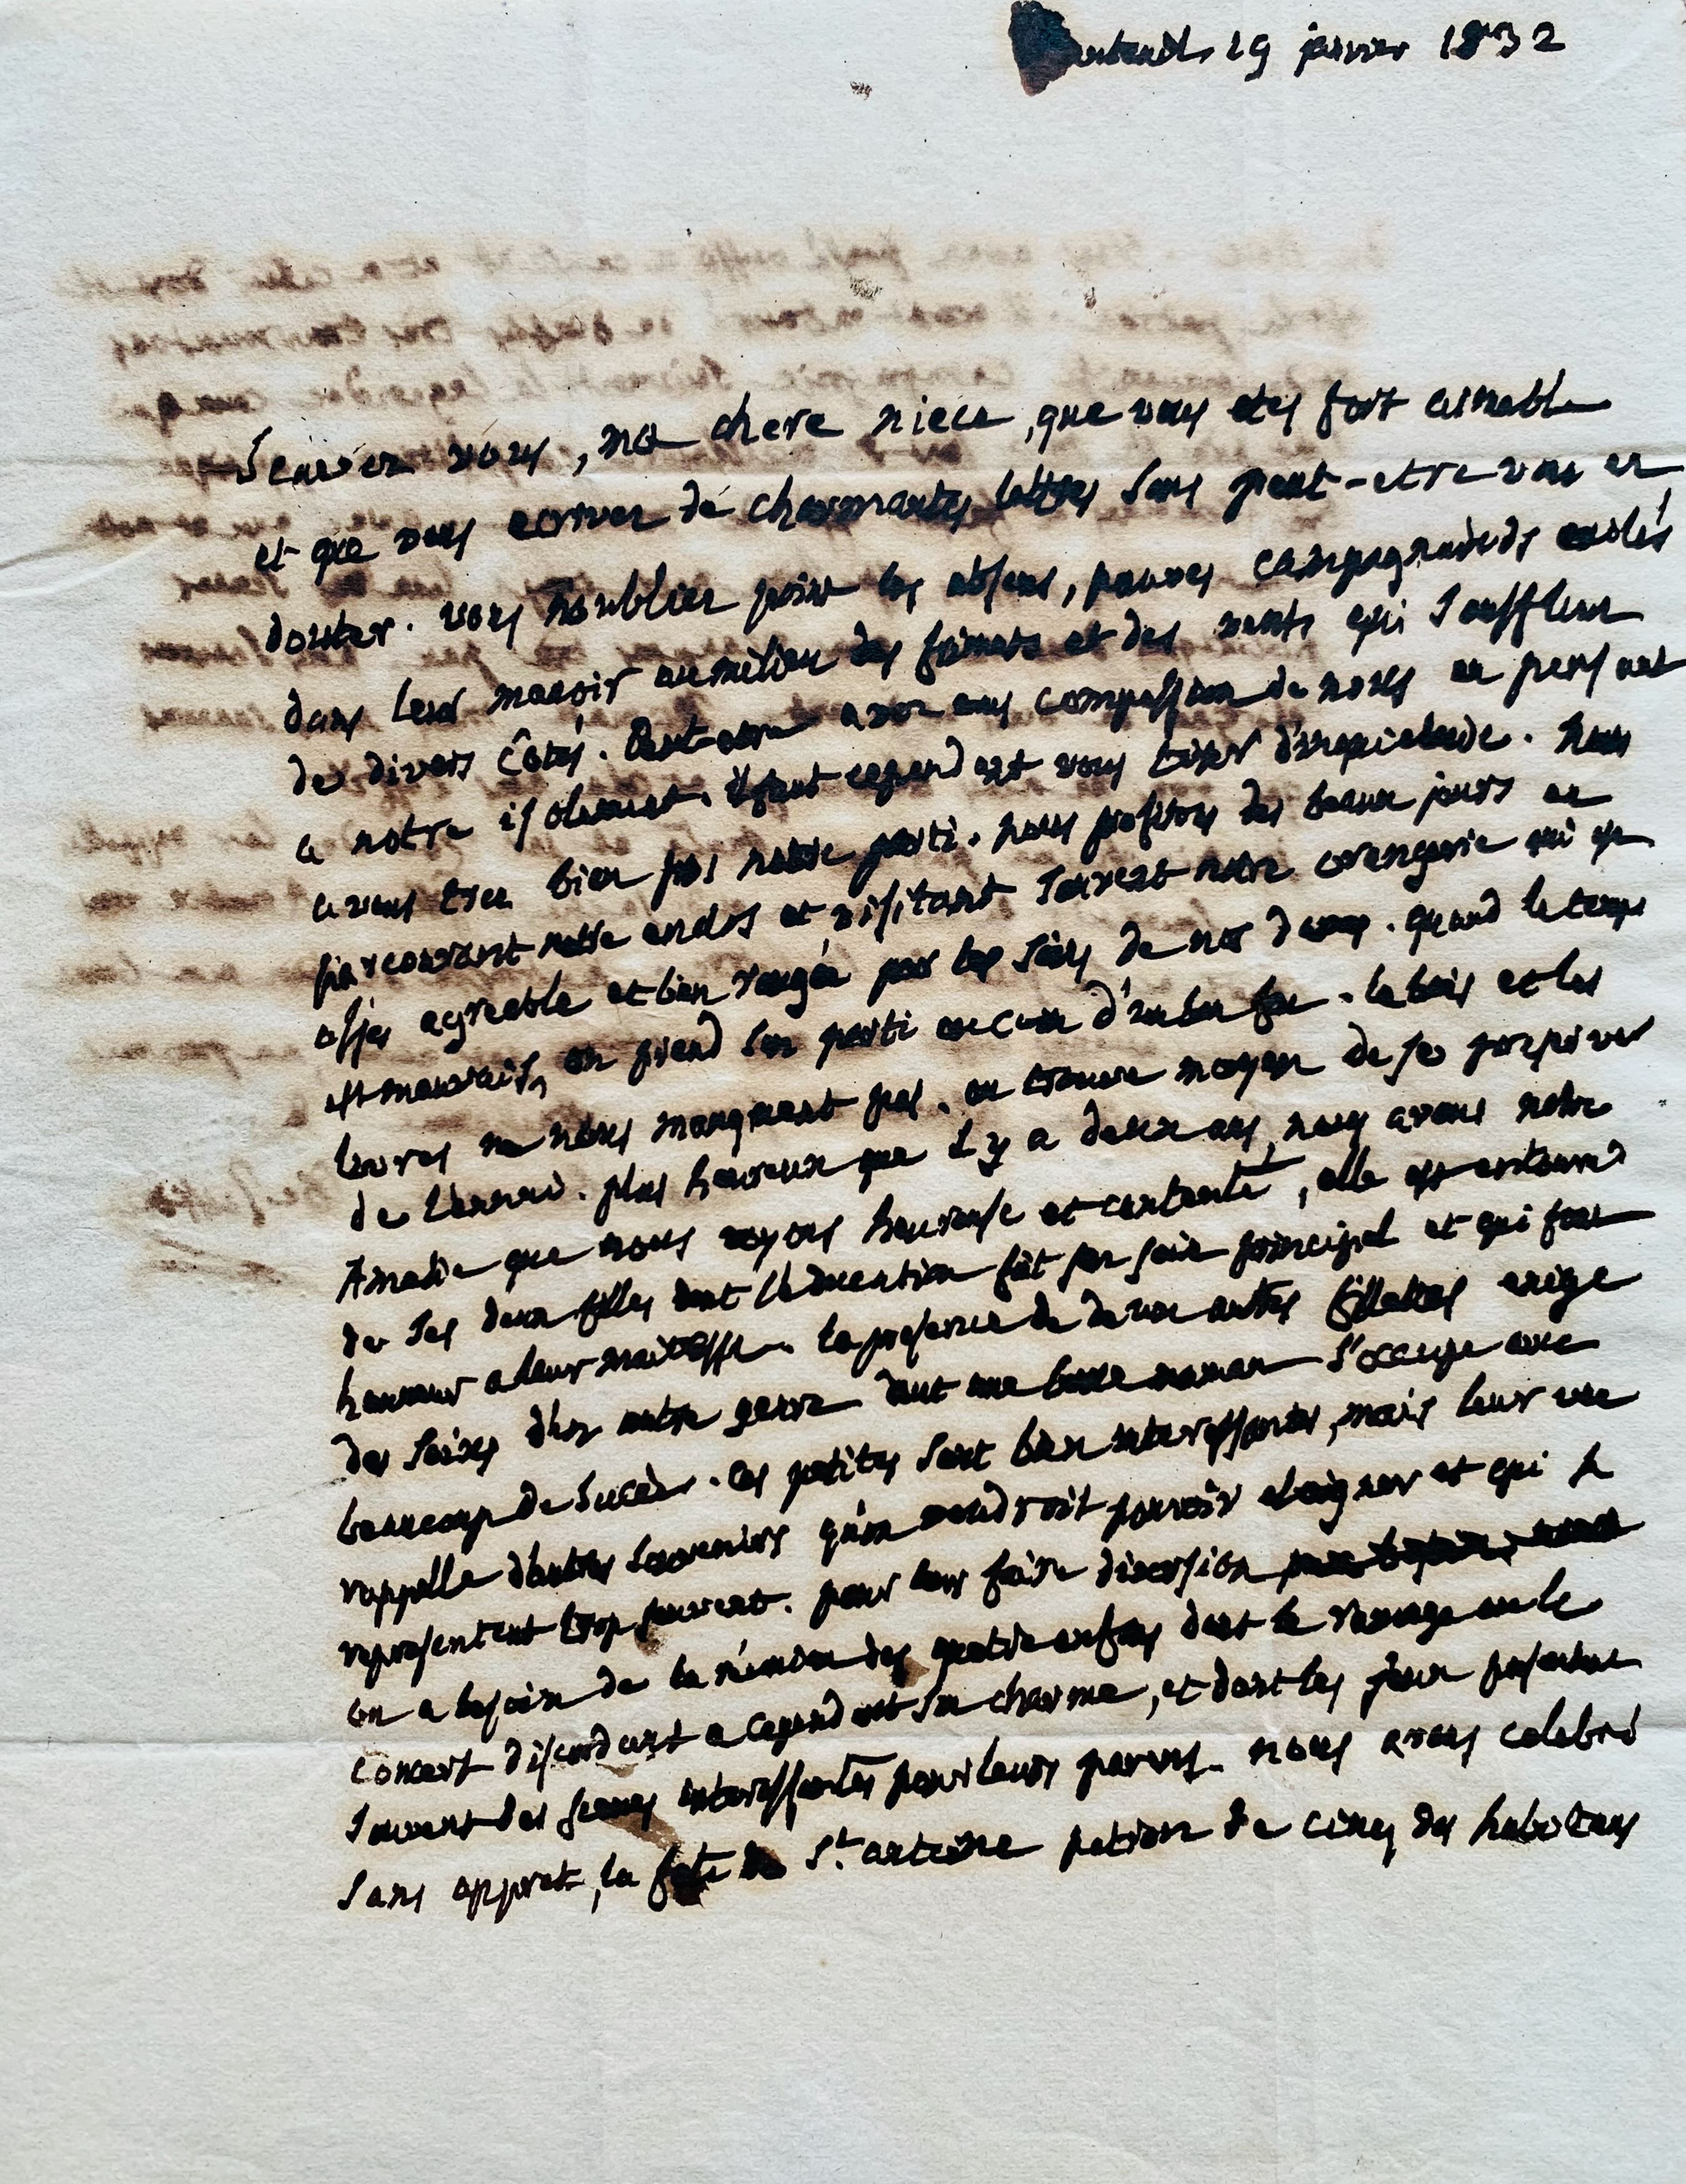 19 janvier 1832
Scavez vous, ma chere niece, que vous etes fort aimable
et que vous ecrivez de charmantes lettres sans peut-etre vous en
douter. vous noubliez point les absens, pauvres campagnards exilés
dans leur manoir au milieu des frimats et des vents qui soufflent
de divers côtés. Peut-etre avez vous compassion de nous en pensant
a notre isolement. il faut cependant vous tirer d'inquietude. nous
avons tres bien pris notre parti. nous profitons des beaux jours en
parcourant notre enclos et visitant souvent notre orangerie qui est
assez agreable et bien rangée par les soins de nos dames. quand le temps
est mauvais, on prend son parti au coin d'un bon feu. le bois et les
livres ne nous manquent pas. on trouve moyen de se preserver
de l'ennui. plus heureux que il y a deux ans, nous avons notre
Amelie que nous voyons heureuse et contente, elle est entouree
de ses deux filles dont l'education fait son soin principal et qui font
honneur a leur maitresse. la presence de deux autres fillettes exige
des soins d'un autre genre dont une bonne maman s'occupe avec
beaucoup de succès. ces petites sont bien interessantes, mais leur vue
rappelle d'autres souvenirs qu'on voudroit pouvoir eloigner et qui se
representent trop souvent. pour leur faire diversion
on a besoin de la réunion des quatre enfans dont le ramage ou le
concert discordant a cependant son charme, et dont les jeux presentent
souvent des scenes interessantes pour leurs parens. nous avons celebré
sans appret, la fete de St. antoine patron de cinq des habitans